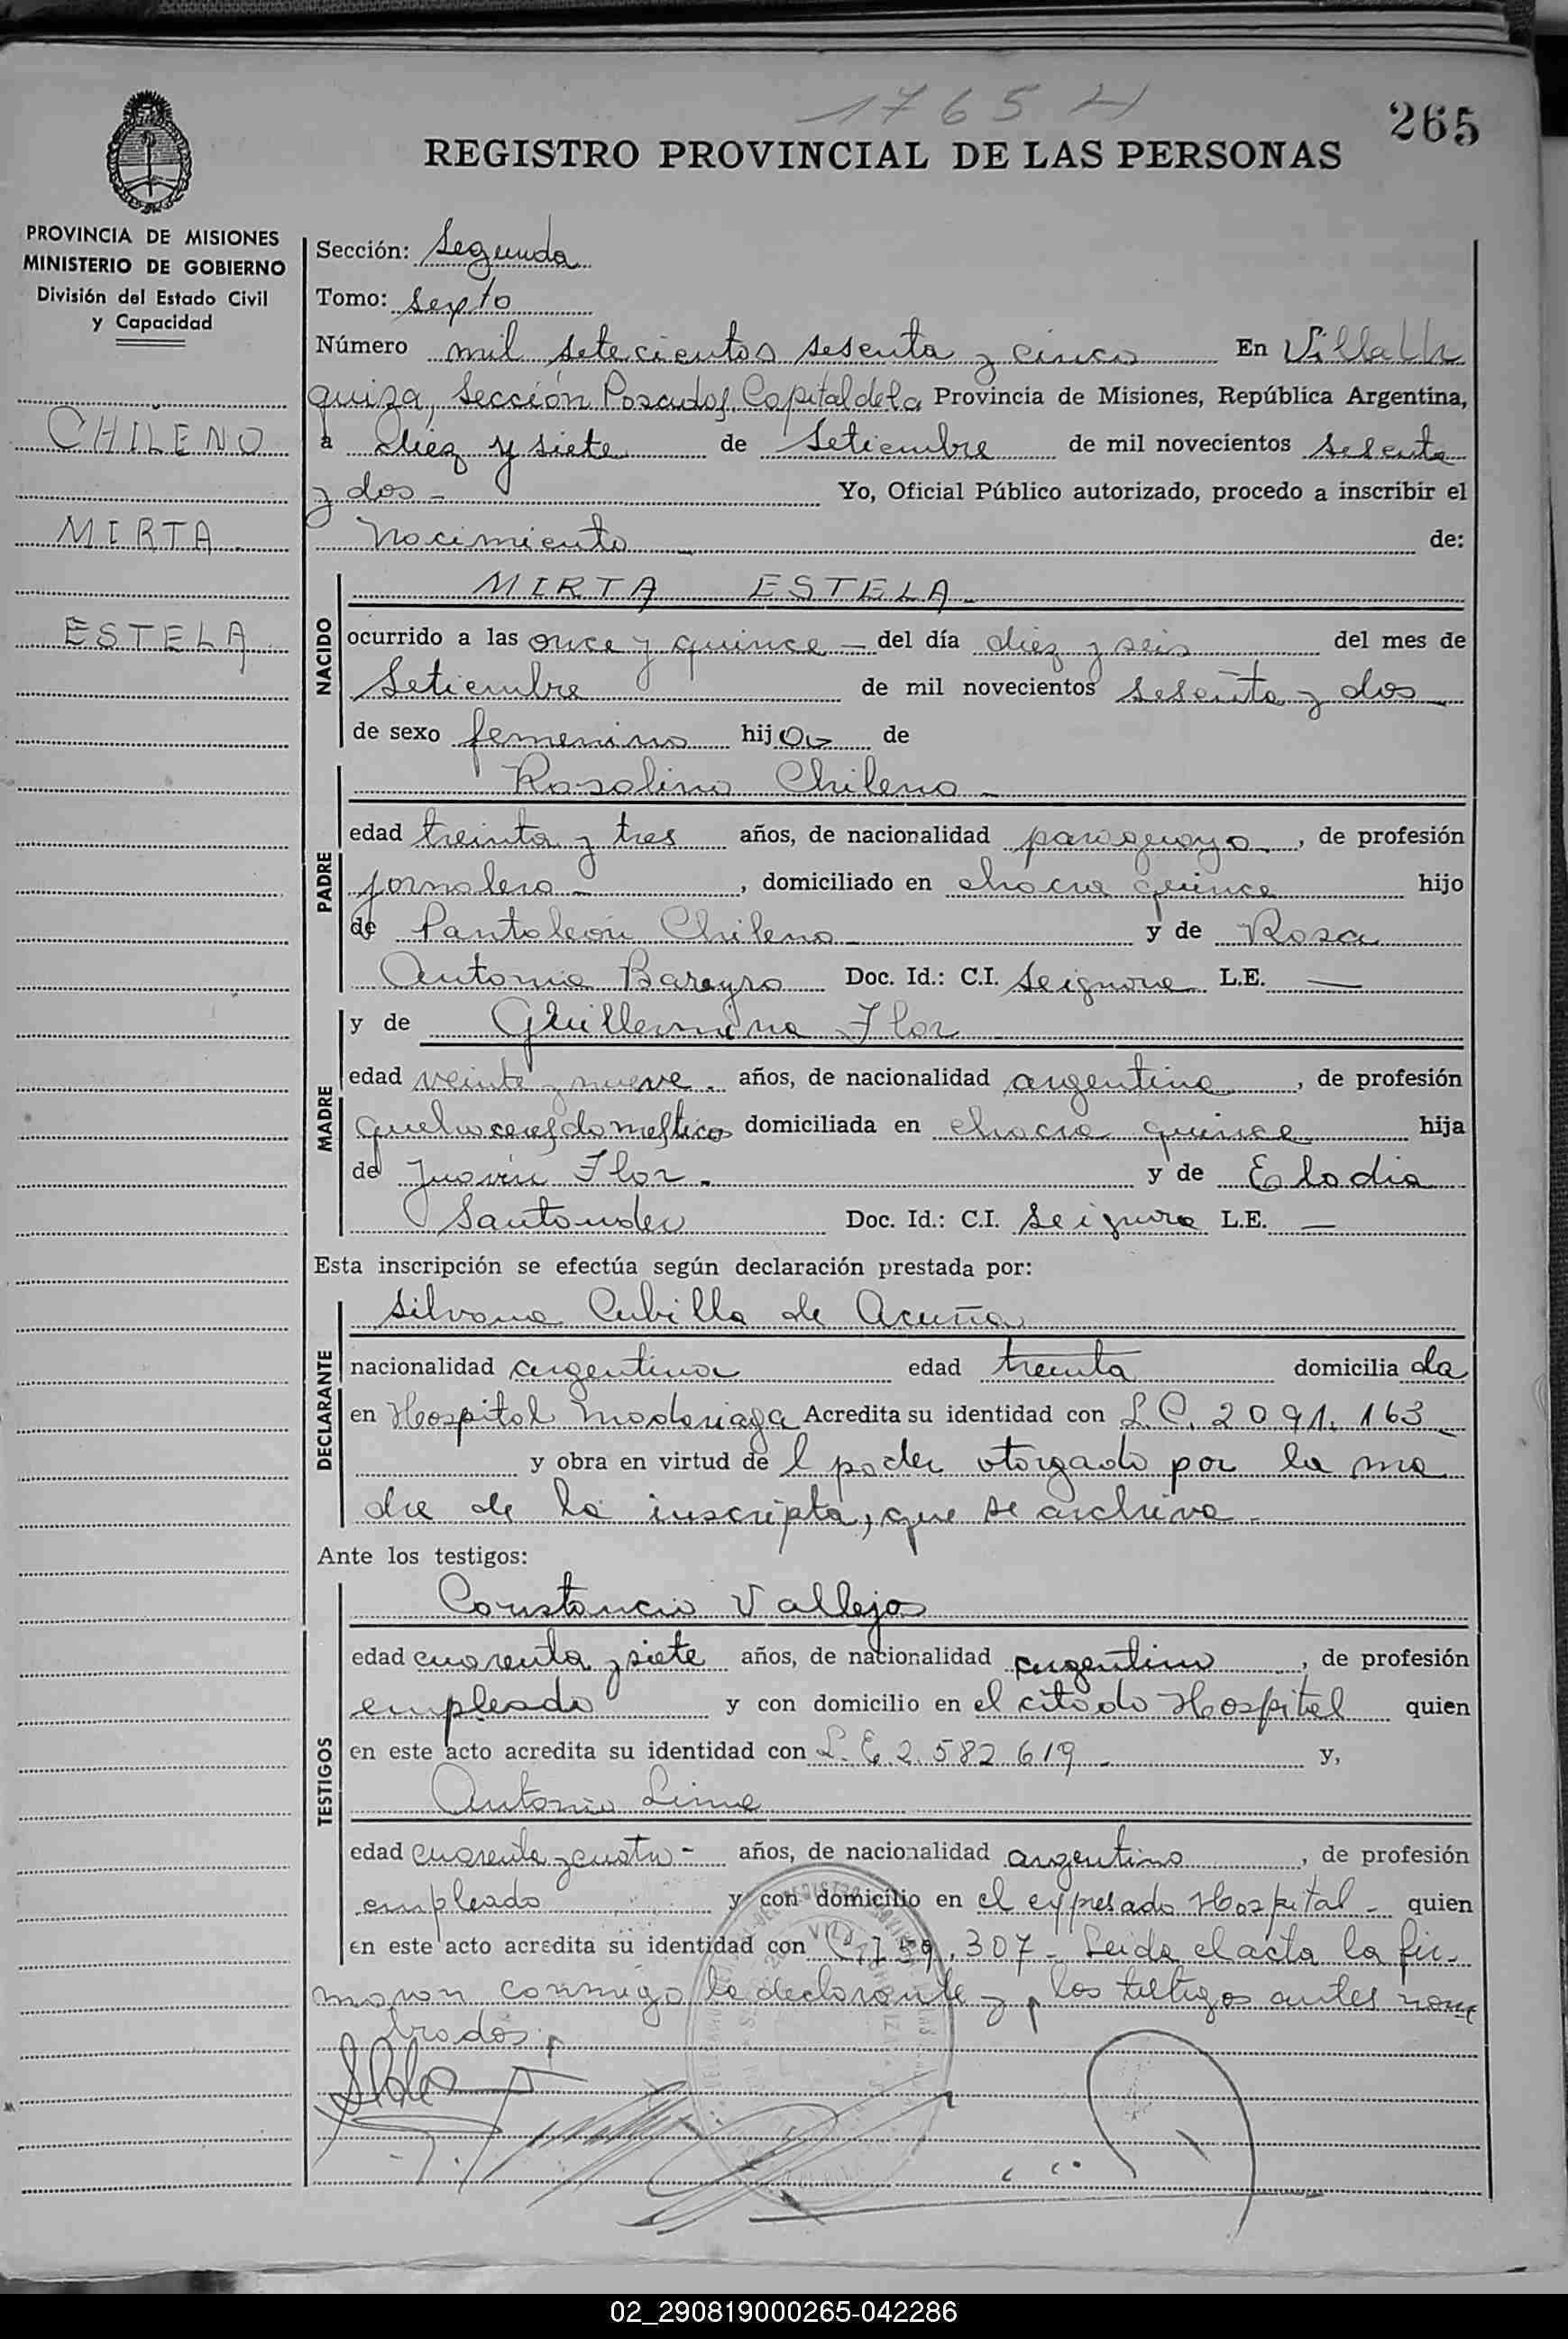 1765
265
REGISTRO PROVINCIAL DE LAS PERSONAS
PROVINCIA DE MISIONES
MINISTERIO DE GOBIERNO
División del Estado Civil
y Capacidad
CHILENO
MIRTA
ESTELA
Sección: Segunda
Tomo: Sexto
Número mil setecientos sesenta y cinco En Villa Ur
quiza, Sección Posadas, Capital de la Provincia de Misiones, República Argentina,
a diez y siete de Setiembre de mil novecientos sesenta
y dos - Yo, Oficial Público autorizado, procedo a inscribir el
Nacimiento de:
NACIDO
MIRTA ESTELA -
ocurrido a las once y quince - del día diez y seis del mes de
Setiembre de mil novecientos sesenta y dos
de sexo femenino hija de
PADRE
Rosalino Chileno -
edad treinta y tres años, de nacionalidad paraguayo, de profesión
jornalero - , domiciliado en chacra quince hijo
de Pantaleón Chileno - y de Rosa
Antonia Bareyro Doc. Id.: C.I. Se ignora L.E. —
MADRE
y de Guillermina Flor
edad veinte y nueve. años, de nacionalidad argentina, de profesión
quehaceres domésticos domiciliada en chacra quince hija
de Flor. y de Elodia
Santander Doc. Id.: C.I. Se ignora L.E. —
Esta inscripción se efectúa según declaración prestada por:
DECLARANTE
Silvana Cubilla de Acuña
nacionalidad argentina edad treinta domicilia da
en Hospital Madariaga Acredita su identidad con L.C. 2091.163
y obra en virtud de l poder otorgado por la ma
dre de la inscripta, que se archiva -
Ante los testigos:
TESTIGOS
Constancio Vallejos
edad cuarenta y siete años, de nacionalidad argentino, de profesión
empleado y con domicilio en el citado Hospital quien
en este acto acredita su identidad con L.E. 2.582.619 - y,
Antonio Lima
edad cuarenta y cuatro - años, de nacionalidad argentino, de profesión
empleado y con domicilio en el expresado Hospital - quien
en este acto acredita su identidad con 307 - Leida el acta la fir-
maron conmigo la declarante y los testigos antes nom
brados.
02_290819000265-042286